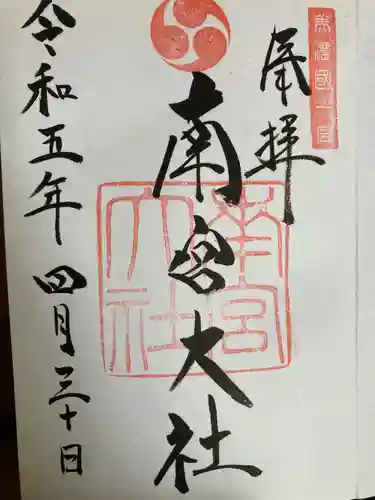 美濃國一宮
奉拝
南宮大社
南宮大社
令和五年四月三十日